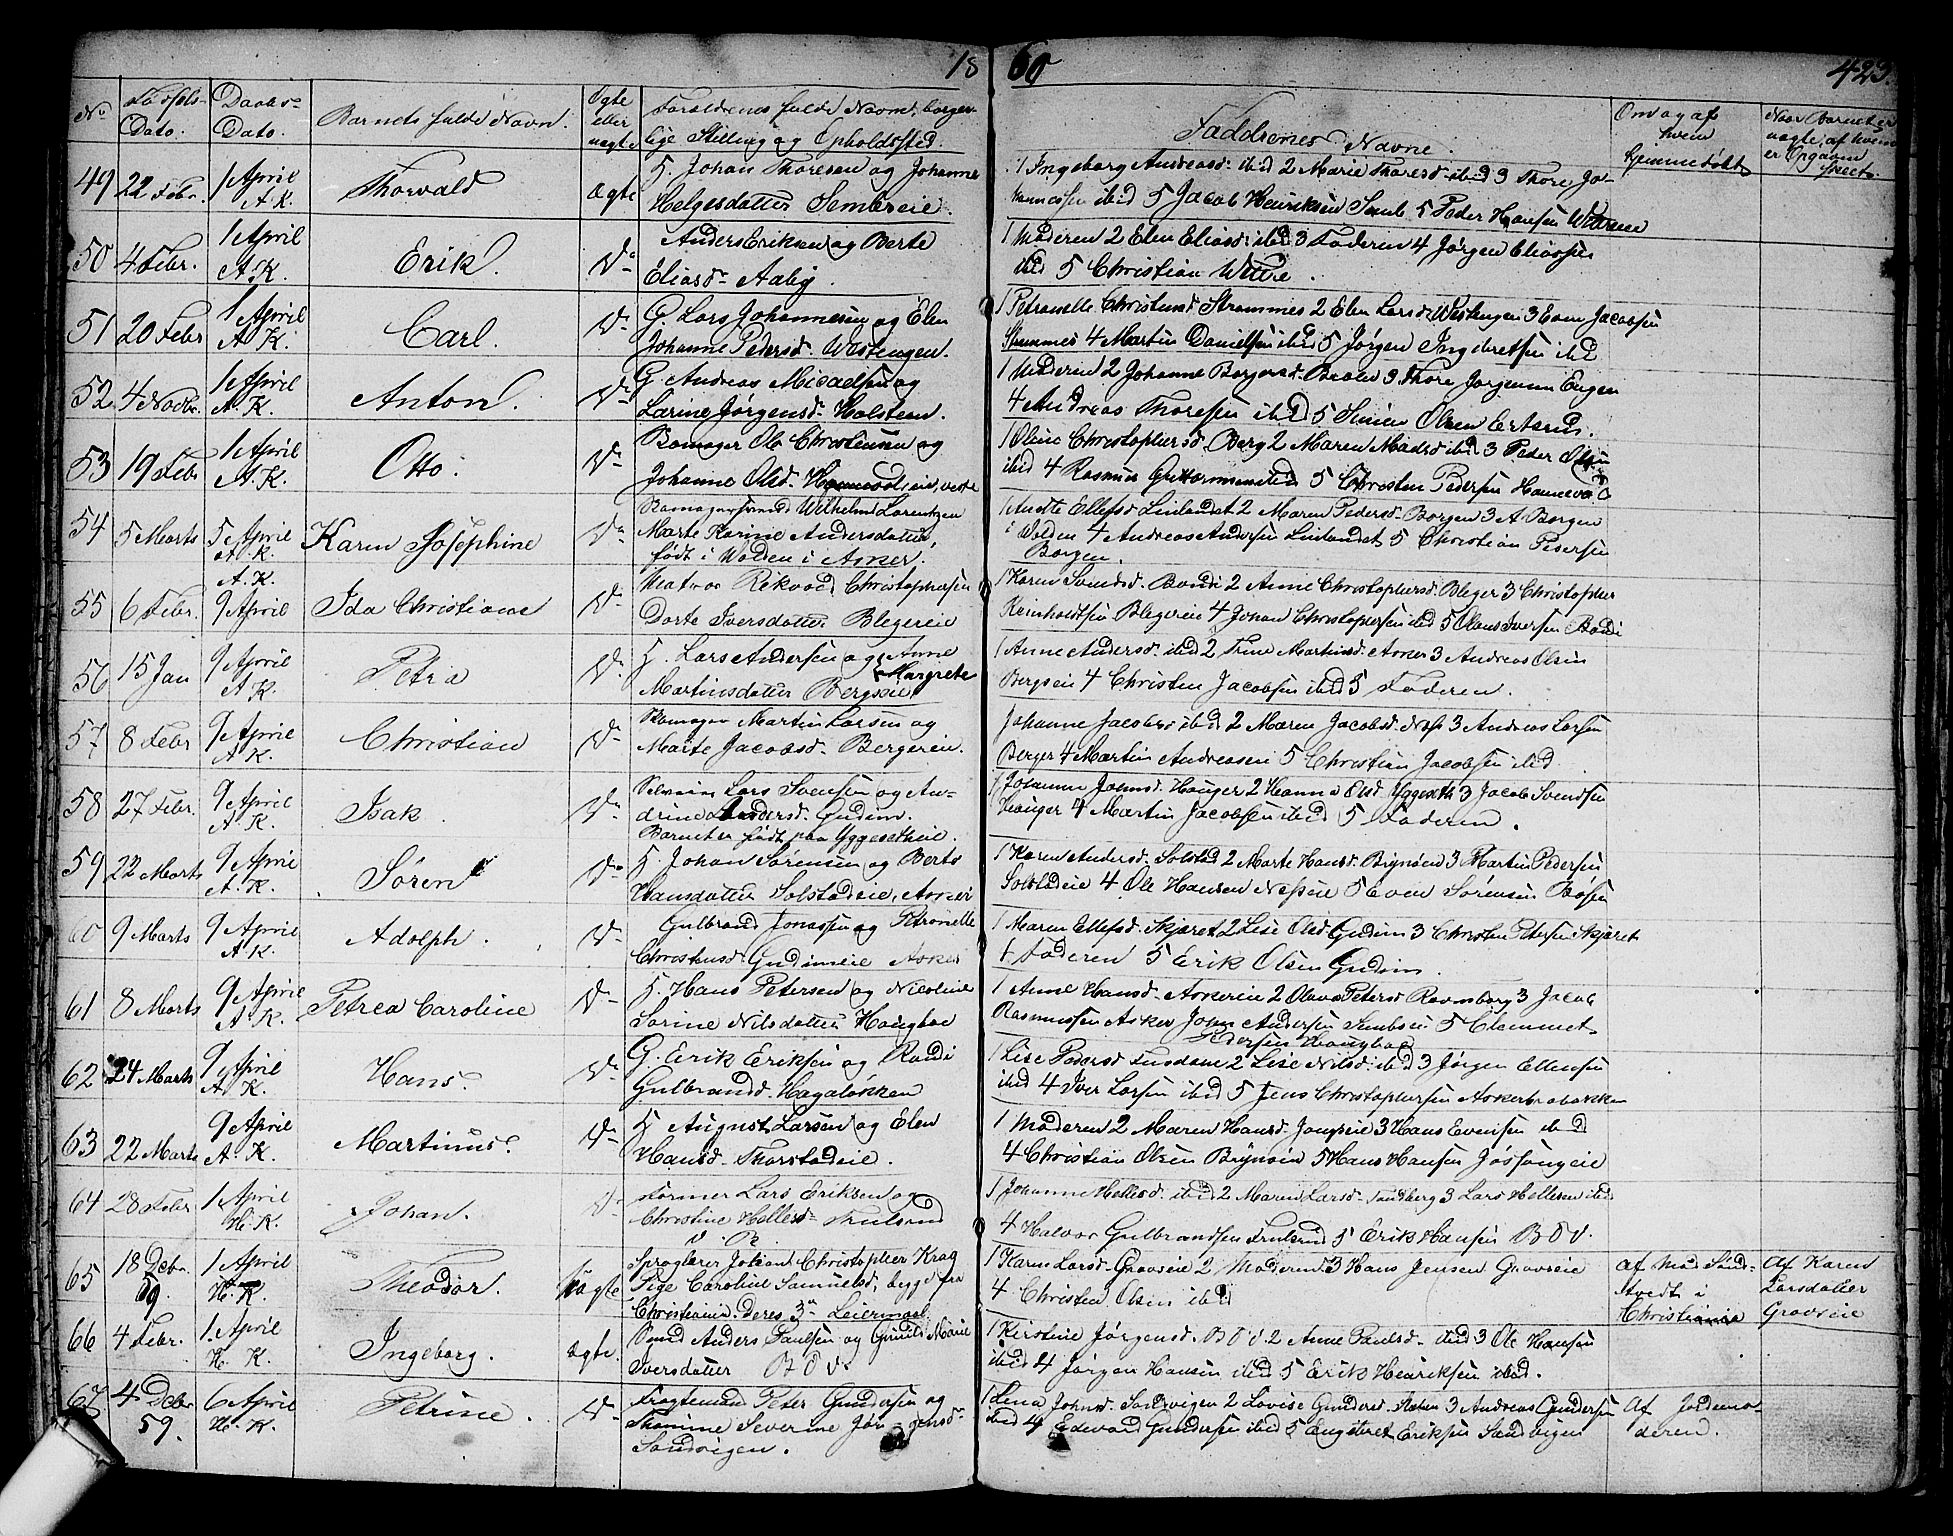 18 60 423.
No Fødsels- Dato. Daabs- Dato. Barnets fulde Navn. Ægte eller uægte Forældrenes fulde Navne, borger- lige Stilling og Opholdssted. Faddernes Navne. Om og af hvem hjemmedøbt Naar Barnet er uægte, af hvem er Opgaven skeet.
49 22 Febr. 1 April A. K. Thorvald Ægte H. Johan Thoresen og Johanne
Helgesdatter Sembseie.
1 Ingeborg Andreasd. ibid 2 Marie Thoresd. ibid 3 Thore Jo-
hannessen ibid 5 Jacob Henriksen Semb 5 Peder Hansen
50 4 Febr. 1 April A. K. Erik. Do Anders Eriksen og Berte
Eliasd. Aaby.
1 Moderen 2 Elen Eliasd. ibid 3 Faderen 4 Jørgen Eliassen
ibid 5 Christian Wettre.
51 20 Febr 1 April A K. Carl. Do G Lars Johannesen og Elen
Johanne Pedersd. Westengen.
1 Petronelle Christensd Strømmes 2 Elen Larsd. Westengen 3 Even Jacobsen
Strømmes 4 Martin Danielsen ibid 5 Jørgen Ingebretsen ibid
52 4 Novbr. 1 April A. K. Anton. Do G Andreas Micaelsen og
Larine Jørgensd. Holsteen.
1 Moderen 2 Johanne Borgersd. Braten 3 Thore Jørgensen Engen
4 Andreas Thoresen ibid 5 Simen Olsen Ertsrud.
53 19 Febr 1 April A. K. Otto. Do Bømager Ole Christensen og
Johanne Olsd.
1 Oline Christophersd. Berg 2 Maren Madsd ibid 3 Peder Olsen
ibid 4 Rasmus Guttormsen ibid 5 Christen Pedersen
54 5 Marts 5 April A. K. Karen Josephine Do Skomagersvend Wilhelm Lorentzen
Marte Karine Andersdatter,
født i Wolden i Asker.
1 Andte Ellefsd Linlandet 2 Maren Pedersd. Borgen 3 A Borgen
i Volden 4 Andreas Andersen Linlandet 5 Christian Pedersen
Borgen
55 6 Febr. A. K. 9 April Ida Christiane Do Matros Rikvod Christophersen
Dorte Iversdatter Blegereie
1 Karen Svendsd. Bondi 2 Anne Christophersd. Bleger 3 Christopher
Reinholdtsen Blegereie 4 Johan Christophersen ibid 5 Olaus Iversen Bondi
56 15 Jan 9 April A K. Petra Do H. Lars Andersen og Anne Margrete
Martinsdatter Bergseie
1 Anne Andersd. ibid 2 Trine Martinsd. Asker 3 Andreas Olsen
Bergseie 4 Christen Jacobsen ibid 5 Faderen.
57 8 Febr 9 April A K. Christian Do Skomager Martin Larsen og
Marte Jacobsd. Bergereie.
Johanne Jacobsd ibid 2 Maren Jacobsd. Næs 3 Andreas Larsen
Berger 4 Martin Andreasen 5 Christian Jacobsen ibid
58 27 Febr. 9 April A. K. Isak. Do Selveier Lars Svensen og An-
drine Andersd. Gudim.
Barnet er født paa Yggesetheie.
1 Johanne Johnsd. Hauger 2 Hanna Olsd. Yggeseth 3 Jacob Svendsen
Hauger 4 Martin Jacobsen ibid 5 Faderen.
59 22 Marts 9 April A. K. Søren Do H. Johan Sørensen og Berte
Hansdatter Solstadeie, Asker
1 Karen Andersd. Solstad 2 Marte Hansd. Brynøen 3 Martin Pedersen
Solstadeie 4 Ole Hansen Næseie 5 Even Sørensen
60 9 Marts 9 April A K. Adolph. Do Gulbrand Jonassen og Petronelle
Christensd. Gudimeie Asker
1 Maren Ellefsd. Skjæret 2 Lise Olsd Gudim 3 Christen Petersen Skjæret
4 Faderen 5 Erik Olsen Gudim.
61 8 Marts 9 April A K. Petrea Caroline Do H. Hans Petersen og Nicoline
Sørine Nilsdatter Hougboe
1 Anne Hansd. Askereie 2 Olava Petersd Ravnsborg 3 Jacob
Rasmussen Asker John Andersen Sembseie 5 Clemmet
Pedersen Hougboe
62 24 Marts 9 April A K. Hans. Do G. Erik Eriksen og Randi
Gulbrandsd. Hagaløkken
1 Lise Pedersd 2 Lise Nilsd. ibid 3 Jørgen Ellensen
ibid 4 Iver Larsen ibid 5 Jens Christophersen Askerbrobakken
63 22 Marts 9 April A K. Martinus. Do H August Larsen og Elen
Hansd. Thorstadeie.
1 Moderen 2 Maren Hansd. 3 Hans Evensen ibid
4 Christian Olsen Brynøen 5 Hans Hansen Jøssongeie
64 28 Febr 1 April H. K. Johan. Do Former Lars Eriksen og
Christine Hellesd. Frulsrud
V. B.
1 Johanne Hellesd. ibid 2 Maren Larsd. Sandberg 3 Lars Hellesen ibid
4 Halvor Gulbrandsen Frulsrud 5 Erik Hansen B V V.
65 18 Debr. 59. 1 April H. K. Theodor. Uægte Sproglærer Johan Christopher Krag
Pige Caroline Samuelsd, begge fra
Christiania. Deres 3die Leiermaal
1 Karen Larsd. Gravseie 2 Moderen 3 Hans Jensen Gravseie
4 Christen Olsen ibid
af Mad Sand-
stvedt i
Christiania
Af Karen
Larsdatter
Gravseie
66 4 Febr. 1 April H. K. Ingeborg. Ægte. Smed Anders Paulsen og Gunild Marie
Iversdatter B V V.
1 Kirstine Jørgensd. B V V. 2 Anne Paulsd. ibid 3 Ole Hansen
ibid 4 Jørgen Hansen ibid 5 Erik Henriksen ibid.
67 4 Debr 59. 6 April H. K. Petrine. Do Fragtemand Peter Gundersen og
Thomine Severine Jørgensd.
Sandvigen.
1 Lena Johnsd. Sandvigen 2 Lovise Gundersd. 3 Andreas Gundersen
ibid 4 Edevard Gundersen ibid 5 Engebret Eriksen Sandvigen
Af Jordemo-
deren.